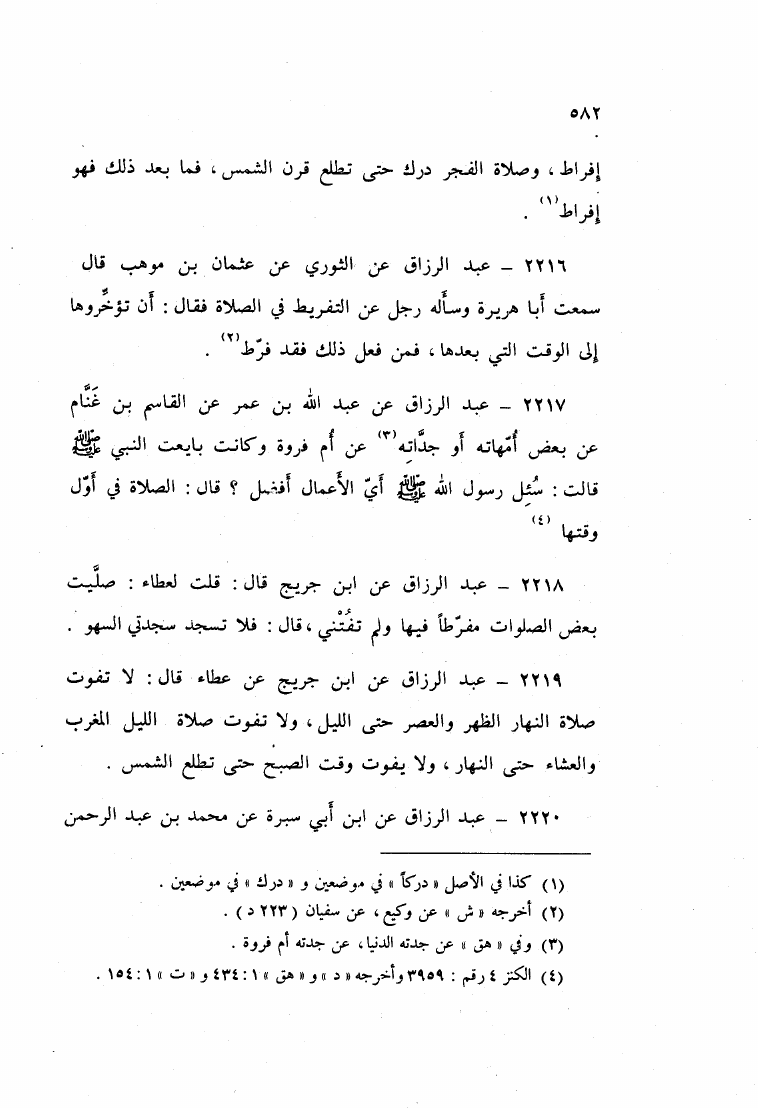 ٥٨٢
إفراط ، وصلاة الفجر درك حتى تطلع قرن الشمس ، فما بعد ذلك فهو
إفراط(١) .
٢٢١٦ – عبد الرزاق عن الثوري عن عثمان بن موهب قال
سمعت أبا هريرة وسأله رجل عن التفريط في الصلاة فقال : أن تؤخِّروها
إلى الوقت التي بعدها ، فمن فعل ذلك فقد فرّط(٢) .
٢٢١٧ – عبد الرزاق عن عبد الله بن عمر عن القاسم بن غَنَّام
عن بعض أُمّهاته أو جدَّاتِه(٣) عن أُم فروة وكانت بايعت النبي ﷺ
قالت : سُئِل رسول الله ﷺ أَيّ الأَعمال أَفضل ؟ قال : الصلاة في أَوّل
وقتها (٤)
٢٢١٨ – عبد الرزاق عن ابن جريج قال : قلت لعطاء : صلَّيت
بعض الصلوات مفرّطاً فيها ولم تفُتْني ، قال : فلا تسجد سجدتي السهو .
٢٢١٩ – عبد الرزاق عن ابن جريج عن عطاء قال : لا تفوت
صلاة النهار الظهر والعصر حتى الليل ، ولا تفوت صلاة الليل المغرب
والعشاء حتى النهار ، ولا يفوت وقت الصبح حتى تطلع الشمس .
٢٢٢٠ – عبد الرزاق عن ابن أَبي سبرة عن محمد بن عبد الرحمن
(١) كذا في الأصل « دركاً » في موضعين و « درك » في موضعين .
(٢) أخرجه « ش » عن وكيع ، عن سفيان ( ٢٢٣ د ) .
(٣) وفي « هق » عن جدته الدنيا ، عن جدته أم فروة .
(٤) الكنز ٤ رقم : ٣٩٥٩ وأخرجه « د » و « هق » ١ : ٤٣٤ و « ت » ١ : ١٥٤ .